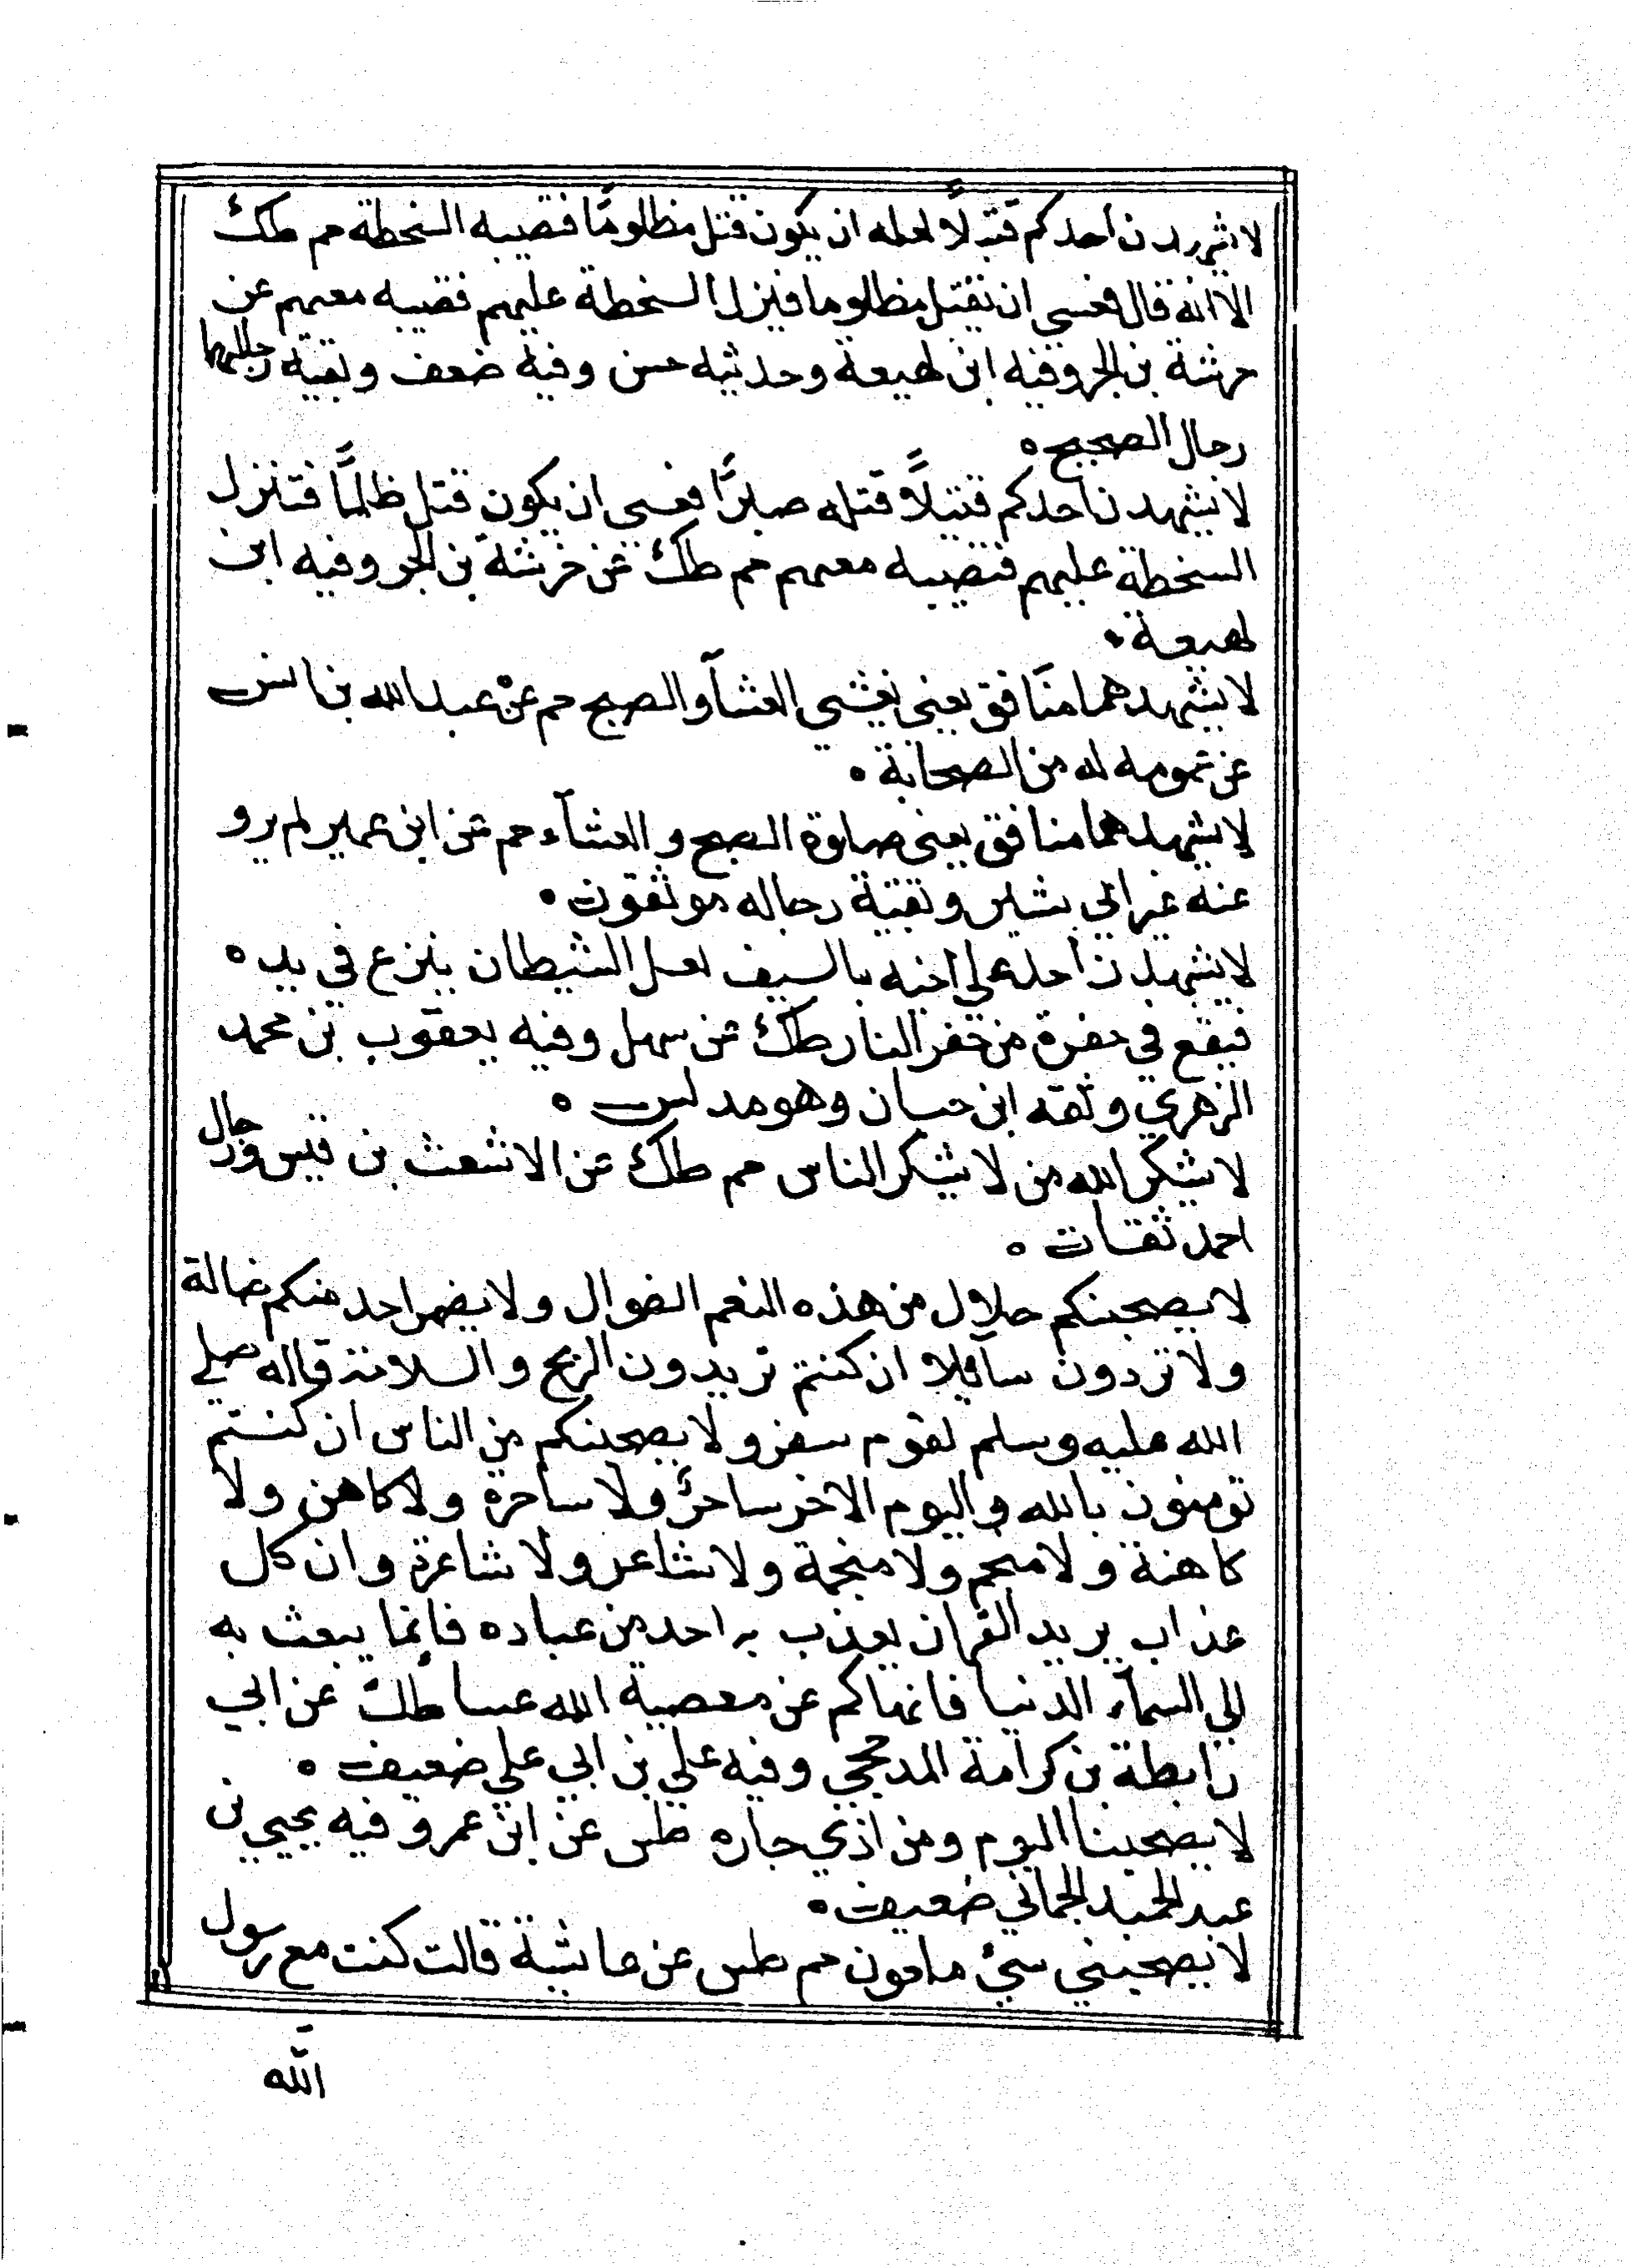 لا يشهدن أحدكم قتيلا لعله ان يكون قتل مظلومًا فتصيبه السخطة حم طك
الا انه قال فعسى ان يقتل مظلوما فينزل السخطة عليهم فتصيبه معهم عن
خرشة بن الحر وفيه ابن لهيعة وحديثه حسن وفيه ضعف وبقية رجالهما
رجال الصحيح ه
لا يشهدن احدكم قتيلًا قتله صبرًا فعسى ان يكون قتل ظلمًا فتنزل
السخطة عليهم فتصيبه معهم حم طك عن خرشة بن الحر وفيه ابن
لهيعة ه
لا يشهدهما منافق يعني يعني العشآ والصبح حم عن عبد الله بن انس
عن عمومه له من الصحابة ه
لا يشهدهما منافق يعني صلوة الصبح والعشآء حم عن ابن عمير لم يرو
عنه غير ابي بشير وبقية رجاله موثقون ه
لا يشهدن احد على اخيه بالسيف لعل الشيطان ينزع في يده
فيقع في حفرة من حفر النار طك عن سهل وفيه يعقوب بن محمد
الزهري وثقه ابن حبان وهو مدلس ه
لا يشكر الله من لا يشكر الناس حم طك عن الاشعث بن قيس ورجال
احمد ثقات ه
لا يصحبنكم حلال من هذه النعم الضوال ولا يضمن احد منكم ضالة
ولا تردون سآئلا ان كنتم تريدون الربح والسلامة قاله صلى
الله عليه وسلم لقوم سفر ولا يصحبنكم من الناس ان كنتم
تومنون بالله واليوم الاخر ساحر ولا ساحرة ولا كاهن ولا
كاهنة ولا منجم ولا منجمة ولا شاعر ولا شاعرة وان كل
عذاب يريد الله ان يعذب به احد من عباده فانما يبعث به
الى السمآء الدنيا فانهاكم عن معصية الله عسا طك عن ابي
رابطة بن كرامة المدحجي وفيه علي بن ابي علي ضعيف ه
لا يصحبنا اليوم ومن اذي جاره طس عن ابن عمرو فيه يحيى بن
عبد الحميد الحماني ضعيف ه
لا يصحبني شئ ملعون حم طس عن عايشة قالت كنت مع رسول
الله